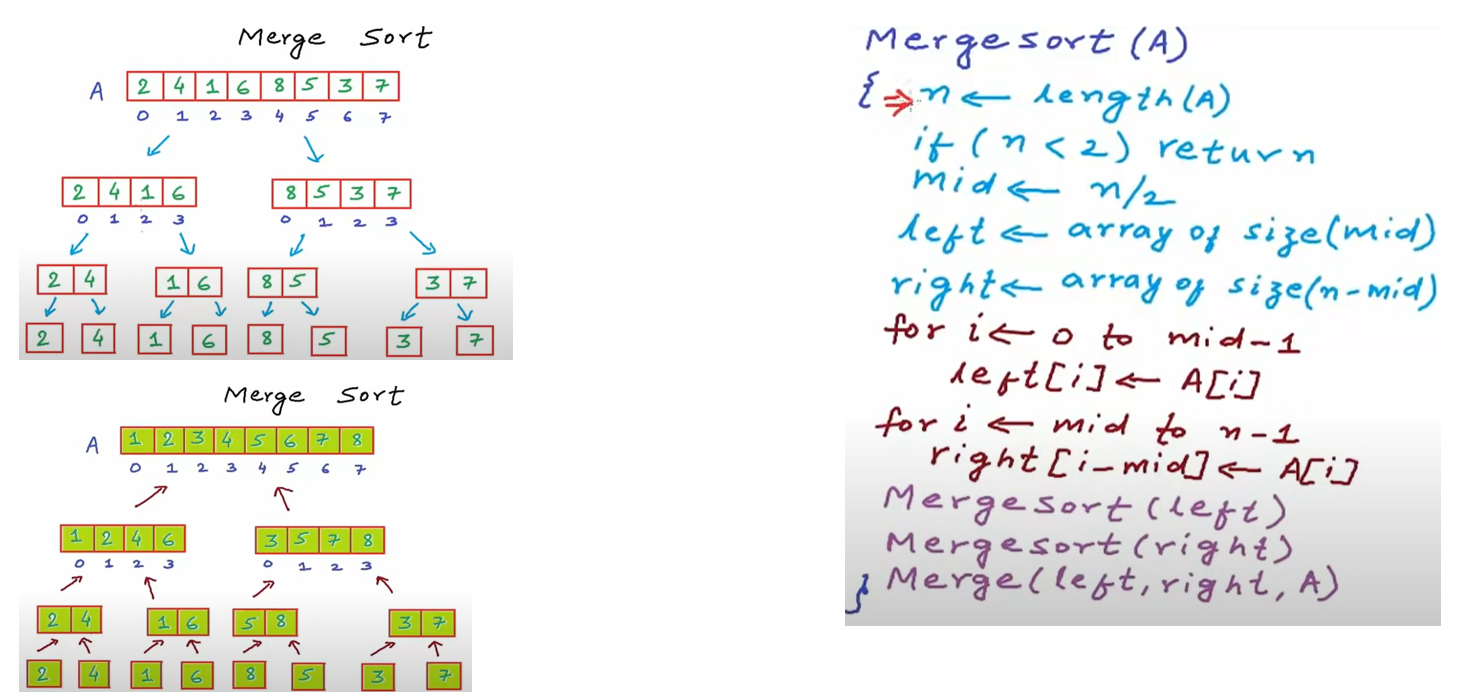 Merge Sort
A 2 4 1 6 8 5 3 7
0 1 2 3 4 5 6 7
2 4 1 6 8 5 3 7
0 1 2 3 0 1 2 3
2 4 1 6 8 5 3 7
2 4 1 6 8 5 3 7
Merge Sort
A 1 2 3 4 5 6 7 8
0 1 2 3 4 5 6 7
1 2 4 6 3 5 7 8
0 1 2 3 0 1 2 3
2 4 1 6 5 8 3 7
2 4 1 6 8 5 3 7
Mergesort(A)
{ ⇒ n ← length(A)
if (n < 2) return
mid ← n/2
left ← array of size(mid)
right ← array of size(n-mid)
for i ← 0 to mid-1
left[i] ← A[i]
for i ← mid to n-1
right[i-mid] ← A[i]
Mergesort(left)
Mergesort(right)
} Merge(left, right, A)